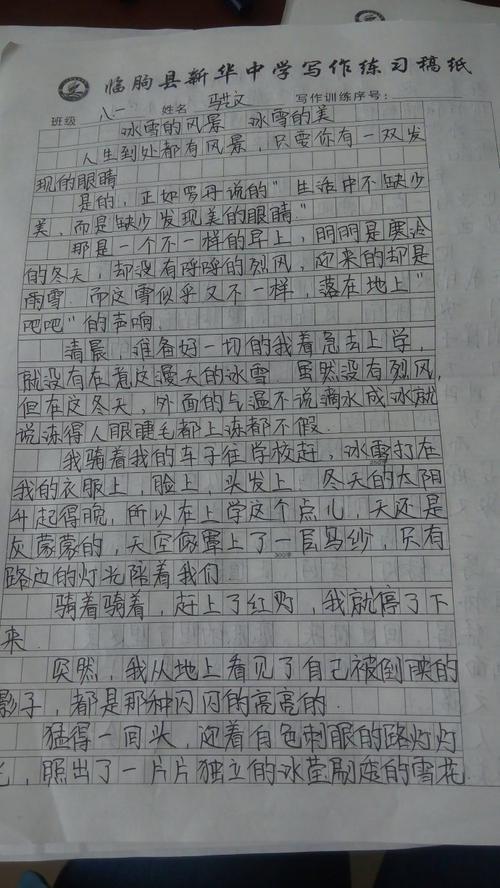 临朐县新华中学写作练习稿纸
班级 八一 姓名 马世文 写作训练序号:
冰雪的风景 冰雪的美
人生到处都有风景,只要你有一双发
现的眼睛
是的,正如罗丹说的"生活中不缺少
美,而是缺少发现美的眼睛."
那是一个不一样的早上,明明是寒冷
的冬天,却没有呼呼的烈风,迎来的却是
雨雪.而这雪似乎又不一样,落在地上"
吧吧"的声响.
清晨,准备好一切的我着急去上学,
就没有在意这漫天的冰雪.虽然没有烈风,
但在这冬天,外面的气温不说滴水成冰就
说冻得人眼睫毛都上冻都不假.
我骑着我的车子往学校赶,冰雪打在
我的衣服上,脸上,头发上.冬天的太阳
升起得晚,所以在上学这个点儿,天还是
灰蒙蒙的,天空像罩上了一层乌纱,只有
路边的灯光陪着我们.
骑着骑着,赶上了红灯,我就停了下
来.
突然,我从地上看见了自己被倒映的
影子,都是那种闪闪的亮亮的.
猛得一回头,迎着白色刺眼的路灯灯
光,照出了一片片独立的冰莹剔透的雪花.